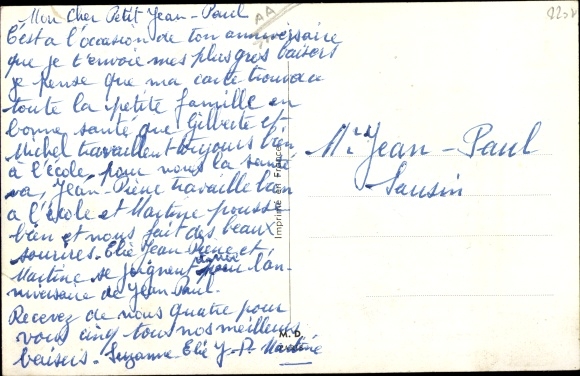 Mon Cher Petit Jean-Paul
C'est a l'occasion de ton anniversaire
que je t'envoie mes plus gros baisers
je pense que ma carte trouvera
toute la petite famille en
bonne santé que Gilberte et
Michel travaillent toujours bien
a l'école, pour nous la santé
va, Jean-Pierre travaille bien
a l'école et Martine pousse
bien et nous fait des beaux
sourires. Elie Jean Pierre et
Martine se joignent pour l'an-
niversaire de Jean Paul.
Recevez de nous quatre pour
vous cinq tous nos meilleurs
baisers. Suzanne Elie J-P Martine
AA
Imprimé en France
M. D.
Mr Jean-Paul
Sausin